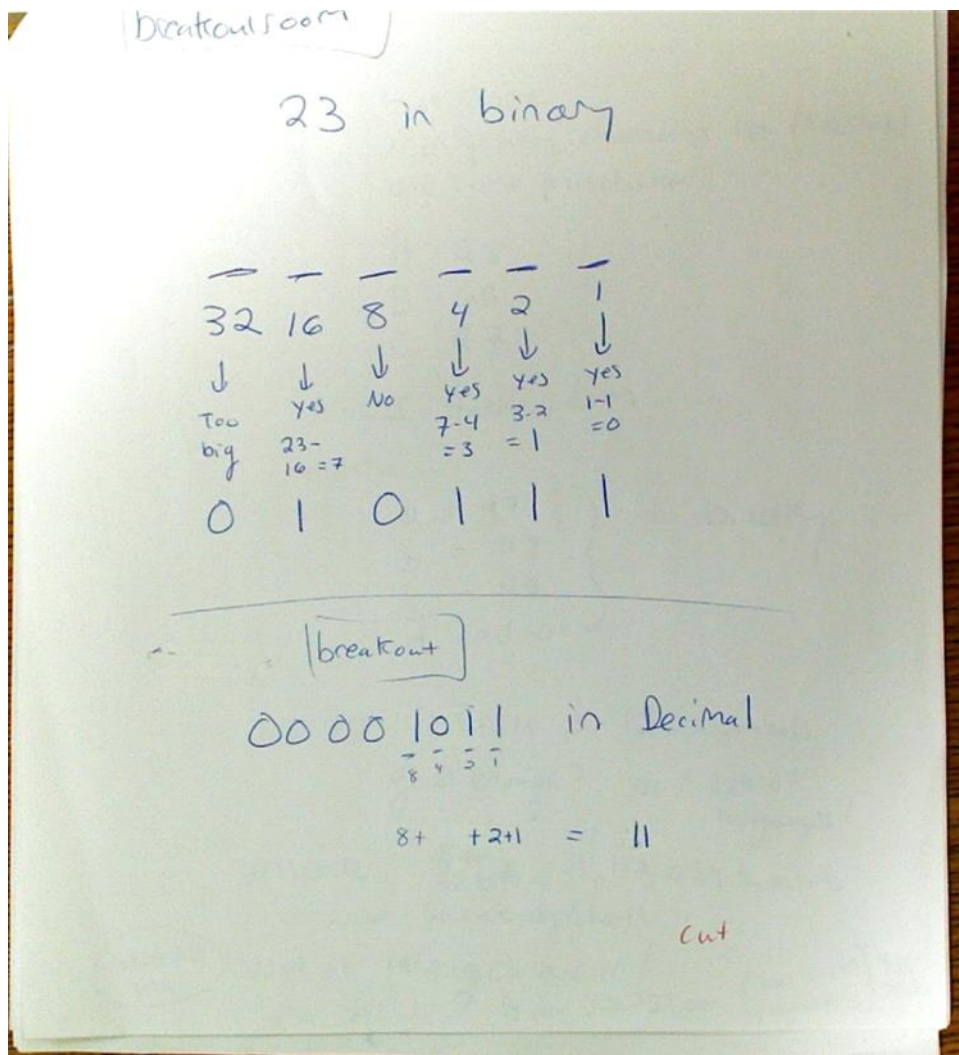 breakoutroom
23 in binary
32 16 8 4 2 1
↓ ↓ ↓ ↓ ↓ ↓
Too big yes No yes yes yes
23-16=7 7-4=3 3-2=1 1-1=0
0 1 0 1 1 1
breakout
00001011 in Decimal
8 4 2 1
8+ +2+1 = 11
cut